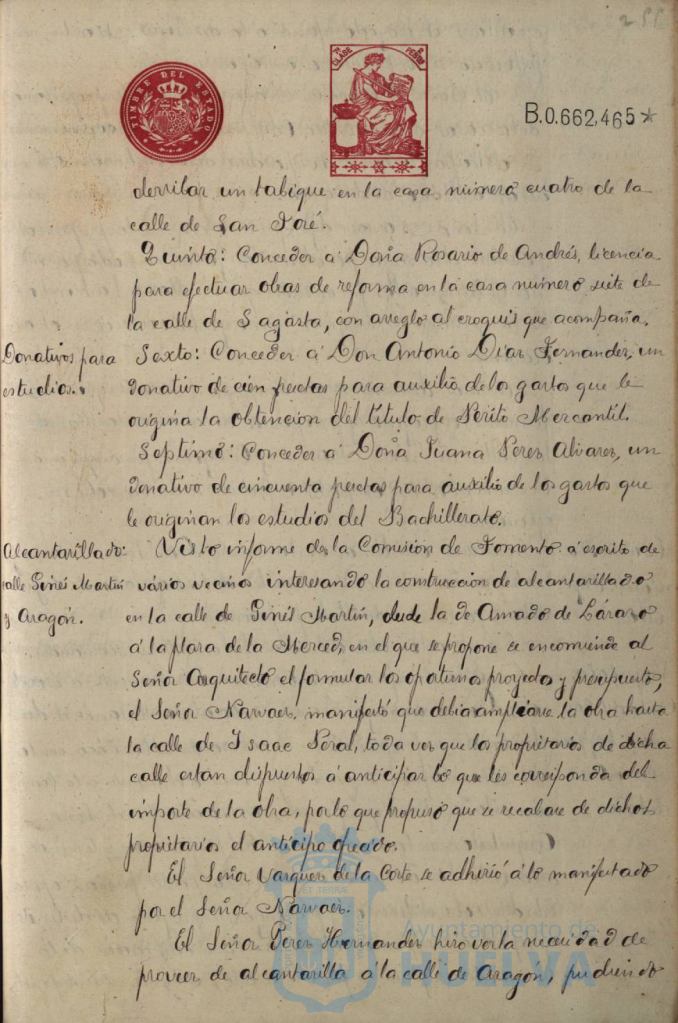 255
TIMBRE DEL ESTADO
CLASE
B.0.662,465*
derribar un tabique en la casa número cuatro de la
calle de San José.
Quinto: Conceder á Doña Rosario de Andrés, licencia
para efectuar obras de reforma en la casa número siete de
la calle de Sagasta, con arreglo al croquis que acompaña.
Donativos para
estudios.
Sexto: Conceder á Don Antonio Díaz Fernandez, un
donativo de cien pesetas para auxilio de los gastos que le
origina la obtención del título de Perito Mercantil.
Septimo: Conceder á Doña Juana Perez Alvarez, un
donativo de cincuenta pesetas para auxilio de los gastos que
le originan los estudios del Bachillerato.
Alcantarillado:
calle Ginés Martín
y Aragón.
Visto informe de la Comisión de Fomento á escrito de
vários vecinos interesando la construcción de alcantarillado
en la calle de Ginés Martín, desde la de Amado de Lázaro
á la plaza de la Merced, en el que se propone se encomiende al
Señor Arquitecto el formular los oportunos proyectos y presupuesto,
el Señor Narvaez, manifestó que debia ampliarse la obra hasta
la calle de Isaac Peral, toda vez que los propietarios de dicha
calle estan dispuestos á anticipar lo que les corresponda del
importe de la obra, por lo que propuso que se recabase de dichos
propietarios el anticipo
El Señor Vazquez de la Corte se adhirió á lo manifestado
por el Señor Narvaez.
El Señor Perez Hernandez hizo ver la necesidad de
proveer de alcantarilla á la calle de Aragón, pudiendo
Ayuntamiento de
HUELVA